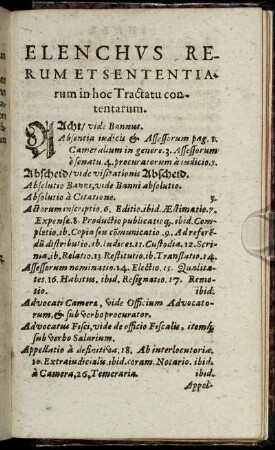 ELENCHVS RE-
RUM ET SENTENTIA-
rum in hoc Tractatu con-
tentarum.
Acht/ vide Bannus.
Absentia iudicis & Assessorum pag. 1.
Cameralium in genere. 3. Assessorum
è senatu. 4. procuratorum à iudicio. 5.
Abscheid/ vide visitationis Abscheid.
Absolutio Banni, vide Banni absolutio.
Absolutio à Citatione. 5.
Actorum inscriptio. 6. Editio. ibid. Æstimatio. 7.
Expensa. 8. Productio publicatioq́;. ibid. Com-
pletio. ib. Copia seu cõmunicatio. 9. Ad referẽ-
dũ distributio. ib. indices. 11. Custodia. 12. Scri-
nia, ib. Relatio. 13 Restitutio. ib. Translatio. 14.
Assessorum nominatio. 14. Electio. 15. Qualita-
tes. 16. Habitus, ibid. Resignatio. 17. Remo-
tio. ibid.
Advocati Cameræ, vide Officium Advocato-
rum, & sub verbo procurator.
Advocatus Fisci, vide de officio Fiscalis, itemq́;
sub verbo Salarium.
Appellatio à definitiva, 18. Ab interlocutoria.
20. Extraiudicialis. ibid. coram. Notario. ibid.
à Camera, 26, Temeraria. ibid.
Appel-